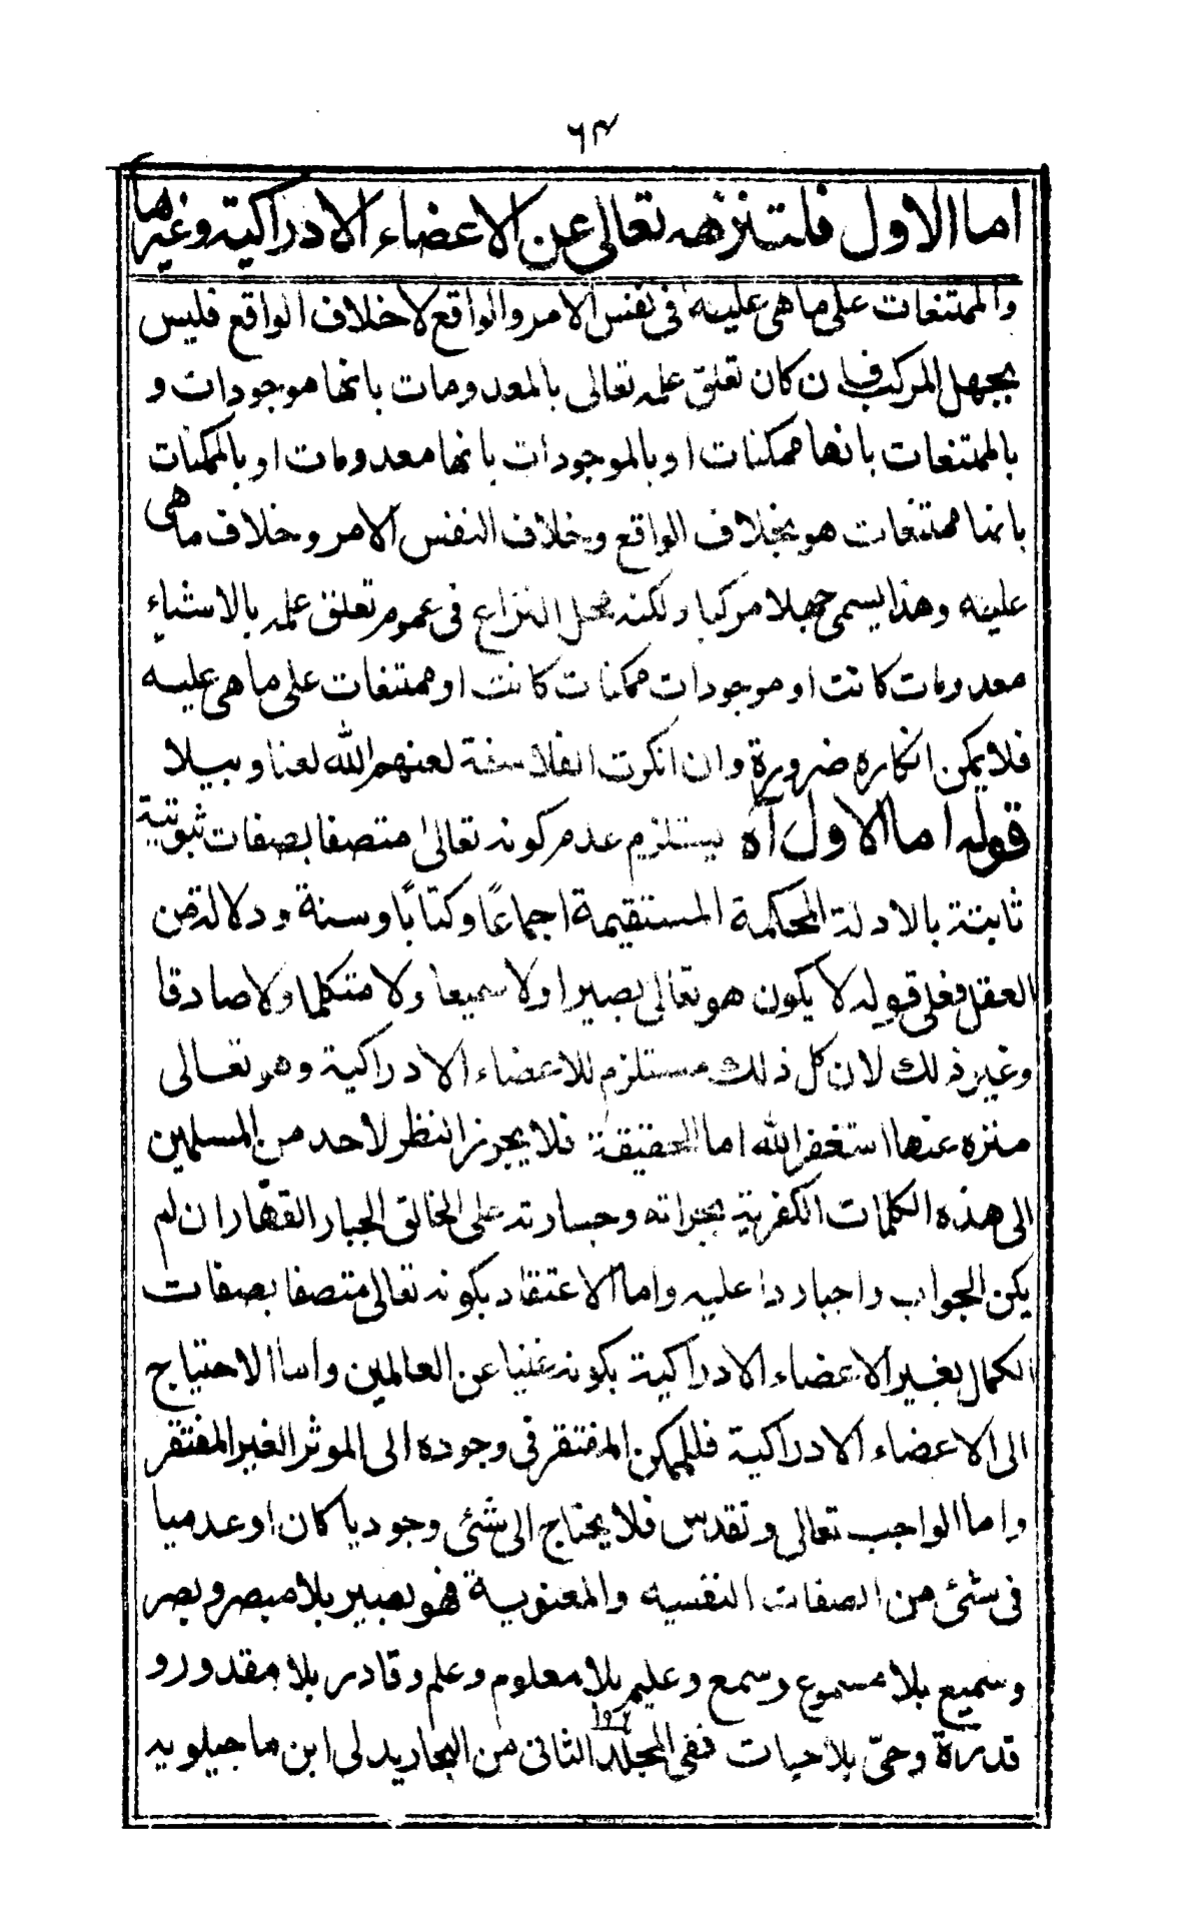 ٦٣
اما الاول فلتنزهه تعالى عن الاعضاء الادراكية وغيرها
والممتنعات على ما هى عليه فى نفس الامر والواقع لا خلاف الواقع فليس
بجهل المركب فان كان تعلق علمه تعالى بالمعدومات بانها موجودات و
بالممتنعات بانها ممكنات او بالموجودات بانها معدومات او بالممكنات
بانها ممتنعات هو بخلاف الواقع وخلاف النفس الامر وخلاف ما هى
عليه وهذا يسمى جهلا مركبا ولكنه محل النزاع فى عموم تعلق علمه بالاشياء
معدومات كانت او موجودات ممكنات كانت او ممتنعات على ما هى عليه
فلا يمكن انكاره ضرورة وان انكرت الفلاسفة لعنهم الله لعنا وبيلا
قوله اما الاول آه يستلزم عدم كونه تعالى متصفا بصفات ثبوتية
ثابتة بالادلة المحكمة المستقيمة اجماعًا وكتابًا وسنة ودلالة من
العقل فعلى قوله لا يكون هو تعالى بصيرا ولا سميعا ولا متكلما ولا صادقا
وغير ذلك لان كل ذلك مستلزم للاعضاء الادراكية وهو تعالى
منزه عنها استغفر الله اما الحقيقة فلا يجوز النظر لاحد من المسلمين
الى هذه الكلمات الكفرية بجراته وجسارته على الخالق الجبار القهّار ان لم
يكن الجواب واجبا ردا عليه واما الاعتقاد بكونه تعالى متصفا بصفات
الكمال بغير الاعضاء الادراكية بكونه غنيا عن العالمين واما الاحتياج
الى الاعضاء الادراكية فللممكن المفتقر فى وجوده الى الموثر الغير المفتقر
واما الواجب تعالى وتقدس فلا يحتاج الى شئى وجوديا كان او عدميا
فى شئى من الصفات النفسيه والمعنوية فهو بصير بلا مبصر وبصر
وسميع بلا مسموع وسمع وعليم بلا معلوم وعلم وقادر بلا مقدور و
قدرة وحىّ بلا حيات ففى المجلد الثانى من البحار يد لى ابن ماجيلويه